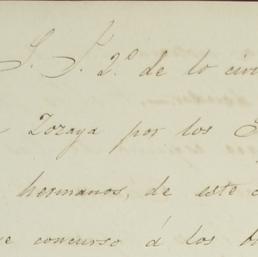 J. J. 2º de lo civi
Zoraya por los
hermanos, de este
concurso á los